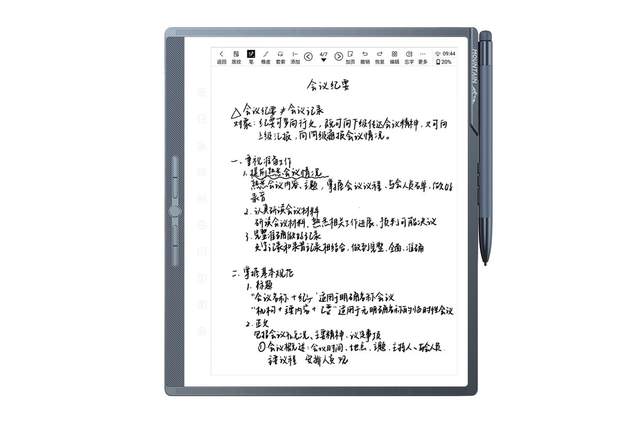 返回 笔 橡皮 套索 添加 4/7 加页 撤销 恢复 编辑 更多 09:44 20%
MOUNTAIN
会议纪要
△会议纪要≠会议记录
对象：纪要可多向行文，既可向下级传达会议精神，又可向
上级汇报，向同级通报会议情况。
一、重视准备工作
1. 提前熟悉会议情况
熟悉会议内容、主题，掌握会议议程、与会人员名单，做好
录音
2. 认真研读会议材料
研读会议材料，熟悉相关工作进展，预判可能决议
3. 完整准确做好记录
记录和录音记录相结合，做到完整、全面、准确
二、掌握基本规范
1. 标题
"会议名称+纪要"适用于明确名称会议
"机构+ 内容+纪要"适用于无明确名称的临时性会议
2. 正文
包括会议概况、主要精神、议定事项
① 会议概述：会议时间、地点、主题、主持人、与会人员
议程